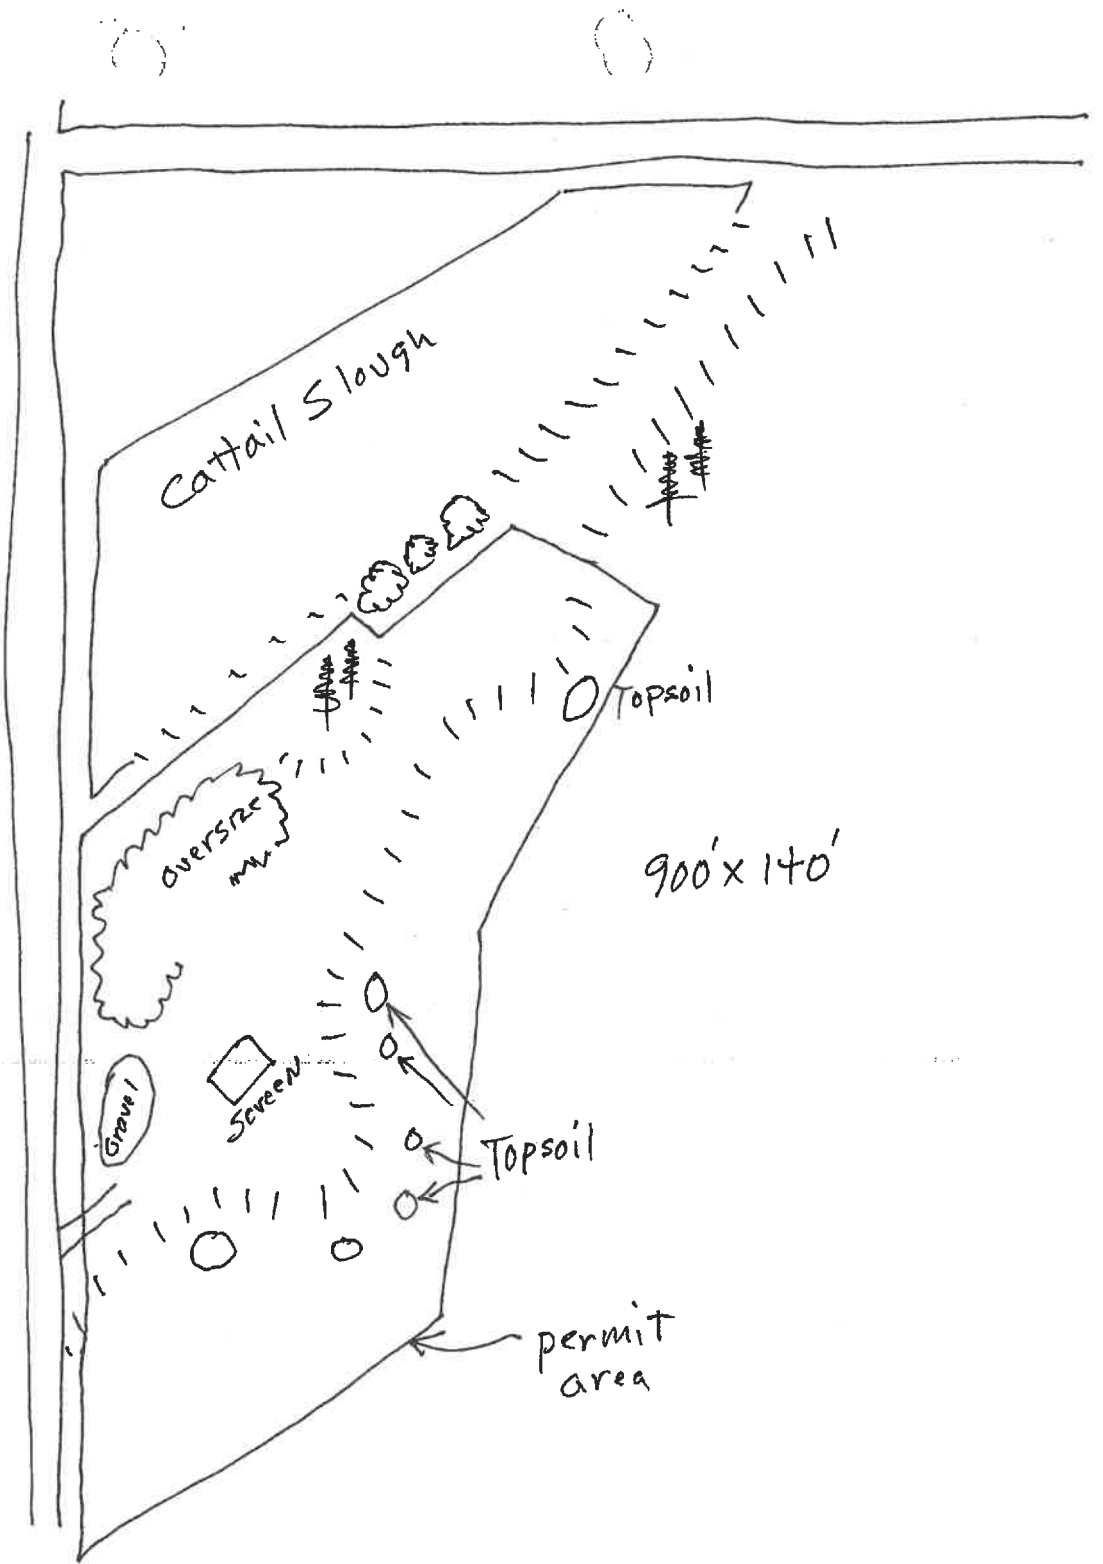 Cattail Slough
Topsoil
oversize
900' x 140'
Screen
Gravel
Topsoil
permit
area